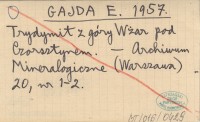 GAJDA E. 1957.
Trydymit z góry Wżar pod
Czorsztynem. — Archiwum
Mineralogiczne (Warszawa)
20, nr 1-2.